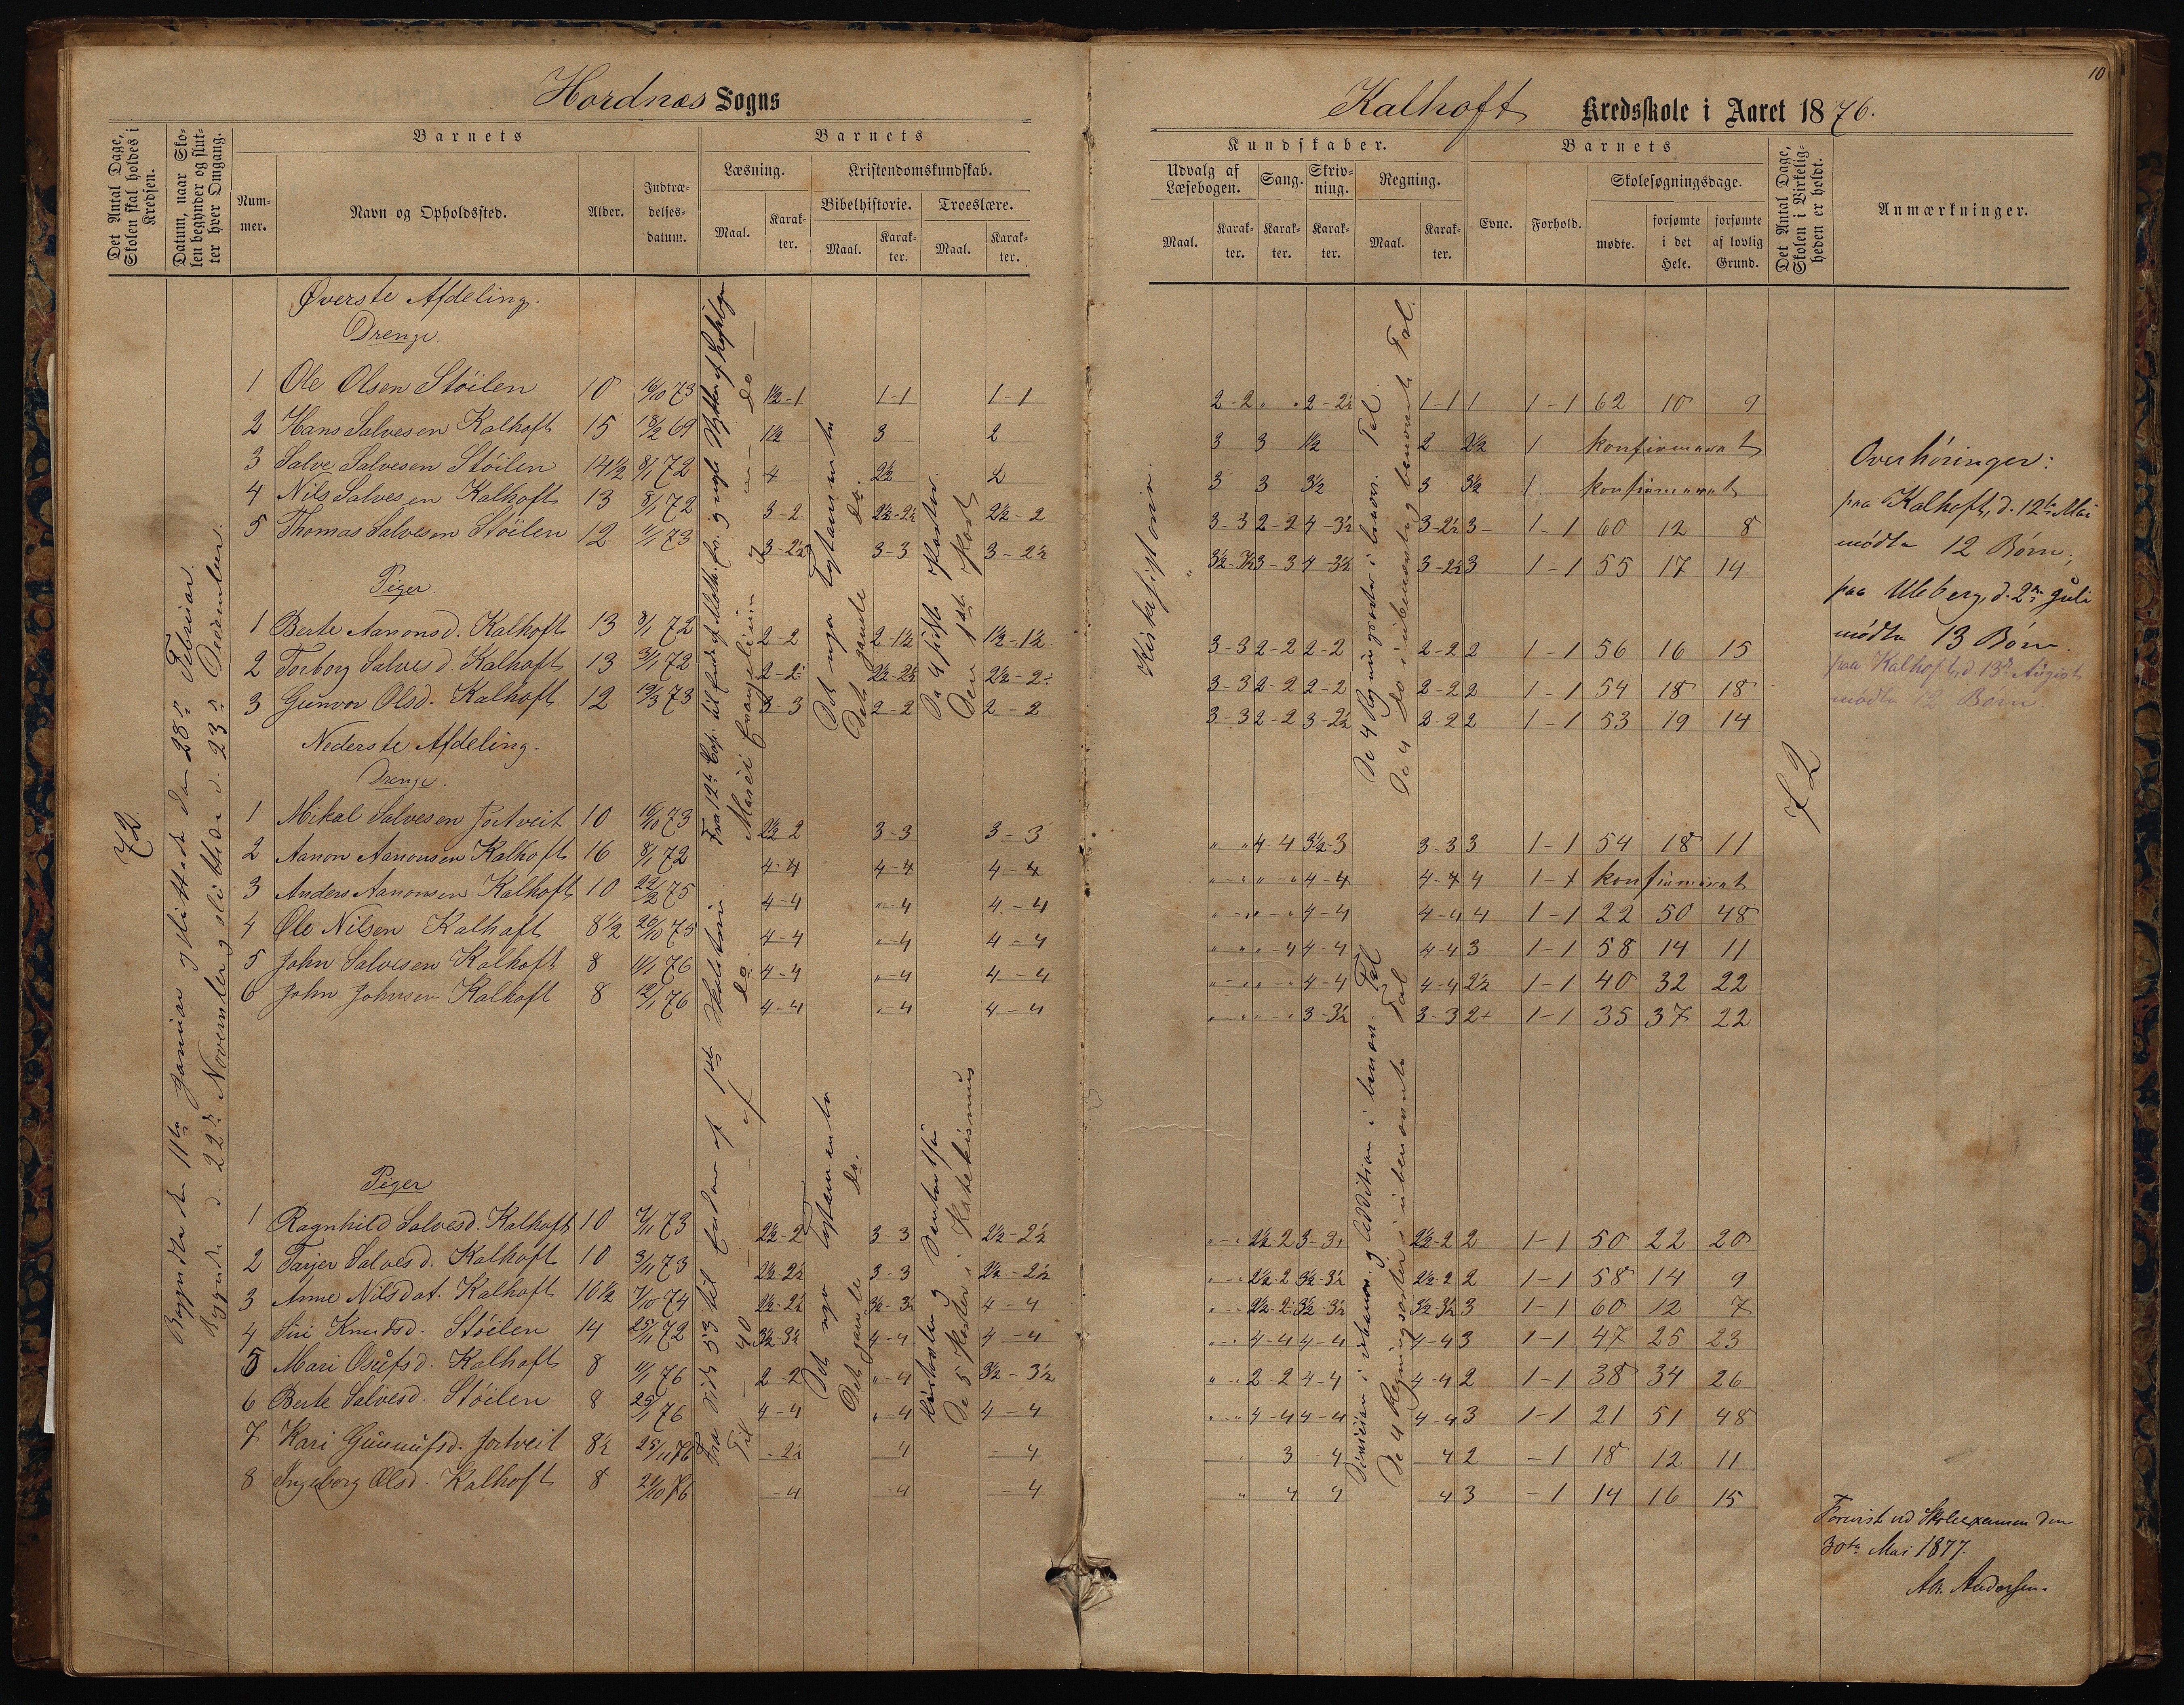 Hordnæs Sogns
Det Antal Dage, Skolen skal holdes i Kredsen.
Datum, naar Skolen begynder og slutter hver Omgang.
Barnets
Nummer.
Navn og Opholdssted.
Alder.
Indtrædelsesdatum.
Barnets
Læsning.
Kristendomskundskab.
Bibelhistorie.
Troeslære.
Maal.
Karakter.
Maal.
Karakter.
Maal.
Karakter.
72.
Begyndte den 11te Januar og sluttede den 28de Februar.
Begyndte d. 22de November og sluttede d. 23de December.
Øverste Afdeling.
Drenge.
1 Ole Olsen Stöilen 10 16/10 73 1½-1 1-1 1-1
2 Hans Salvesen Kalhoft 15 18/2 69 1½ 3 2
3 Salve Salvesen Stöilen 14½ 8/1 72 4 2½ 2
4 Nils Salvesen Kalhoft 13 8/1 72 3-2 2½-2½ 2½-2
5 Thomas Salvesen Stöilen 12 11/1 73 3-2½ 3-3 3-2½
Piger.
1 Berte Aanonsd. Kalhoft 13 8/1 72 2-2 2-1½ 1½-1½
2 Torborg Salvesd. Kalhoft 13 3/1 72 2-2 2½-2½ 2½-2
3 Gunvor Olsd. Kalhoft 12 19/3 73 3-3 2-2 2-2
Det nye Testamente
Det gamle do.
De 4 sidste Parter.
Den 1ste Part
Nederste Afdeling.
Drenge.
1 Mikal Salvesen Jortveit 10 16/10 73 2½-2 3-3 3-3
2 Aanon Aanonsen Kalhoft 16 8/1 72 4-4 4-4 4-4
3 Anders Aanonsen Kalhoft 10 22/2 75 4-4 "-4 4-4
4 Ole Nilsen Kalhoft 8½ 26/10 75 4-4 "-4 4-4
5 John Salvesen Kalhoft 8 11/1 76 4-4 "-4 4-4
6 John Johnsen Kalhoft 8 12/1 76 4-4 "-4 4-4
Piger
1 Ragnhild Salvesd. Kalhoft 10 7/11 73 2½-2 3-3 2½-2½
2 Tarjer Salvesd. Kalhoft 10 3/11 73 2½-2½ 3-3 2½-2½
3 Anne Nilsdat. Kalhoft 10½ 7/10 74 2½-2½ 3½-3½ 4-4
4 Siri Knudsd. Stöilen 14 25/1 72 3½-3½ 4-4 4-4
5 Mari Osufsd. Kalhoft 8 11/1 76 2-2 "-4 3½-3½
6 Berte Salvesd. Stöilen 8 25/1 76 4-4 "-4 4-4
7 Kari Gunnufsd. Jortveit 8½ 25/11 76 -2½ 4 -4
8 Ingeborg Olsd. Kalhoft 8 21/10 76 -4 -4 -4
Det nye Testamente
Det gamle do.
De 5 Parter i Katekismus
10
Kalhoft Kredsskole i Aaret 1876.
Kundskaber.
Udvalg af Læsebogen.
Sang.
Skrivning.
Regning.
Maal.
Karakter.
Karakter.
Karakter.
Maal.
Karakter.
Barnets
Evne.
Forhold.
Skolesøgningsdage.
mødte.
forsømte i det Hele.
forsømte af lovlig Grund.
Det Antal Dage, Skolen i Virkeligheden er holdt.
Anmærkninger.
Kirkehistorie.
De 4 Regningsarter i benævn. Tal.
De 4 do i ubenævnte og benævnte Tal.
2-2 " " 2-2½ 1-1 1 1-1 62 10 9
3 3 1½ 2 2½ 1 konfirmeret
3 3 3½ 3 3½ 1 konfirmeret
3-3 2-2 4-3½ 3-2½ 3- 1-1 60 12 8
3½-3½ 3-3 4-3½ 3-2½ 3 1-1 55 17 14
3-3 2-2 2-2 2-2 2 1-1 56 16 15
3-3 2-2 2-2 2-2 2 1-1 54 18 18
3-3 2-2 3-2½ 2-2 2 1-1 53 19 14
" " 4-4 3½-3 3-3 3 1-1 54 18 11
" - " " - " 4-4 4-4 4 1-1 konfirmeret
" - " " - " 4-4 4-4 4 1-1 22 50 48
" " " 4 4-4 4-4 3 1-1 58 14 11
" - " " - " 4-4 4-4 2½ 1-1 40 32 22
" - " " - " 3-3½ 3-3 2+ 1-1 35 37 22
" - " 2½-2 3-3 2½-2 2 1-1 50 22 20
" - " 2½-2 3½-3½ 2½-2 2 1-1 58 14 9
" - " 2½-2 3½-3½ 3½-3½ 3 1-1 60 12 7
" - " 4-4 4-4 4-4 3 1-1 47 25 23
" - " 2-2 4-4 4-4 2 1-1 38 34 26
" - " 4-4 4-4 4-4 3 1-1 21 51 48
3 4 4 2 -1 18 12 11
" 4 4 4 3 -1 14 16 15
De 4 Regningsarter i ubenævnte Tal
72
Overhöringer:
paa Kalhoft, d. 12te Mai
mödte 12 Børn;
paa Uleberg, d. 2den Juli
mödte 13 Børn.
paa Kalhoft, d. 13de August
mödte 12 Børn.
Forevist ved Skoleexamen den
30te Mai 1877.